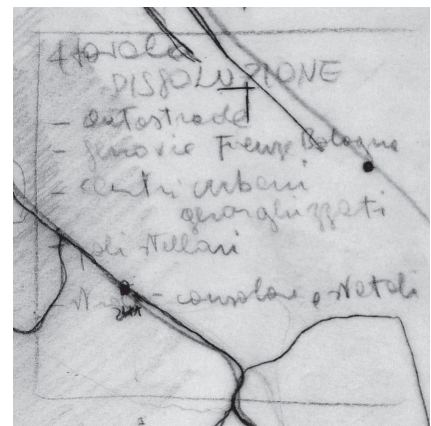 4 tavola
DISSOLUZIONE
- autostrade
- ferrovie Firenze Bologna
- centri urbani
gerarghizzati
- poli stellari
- consolare e statali